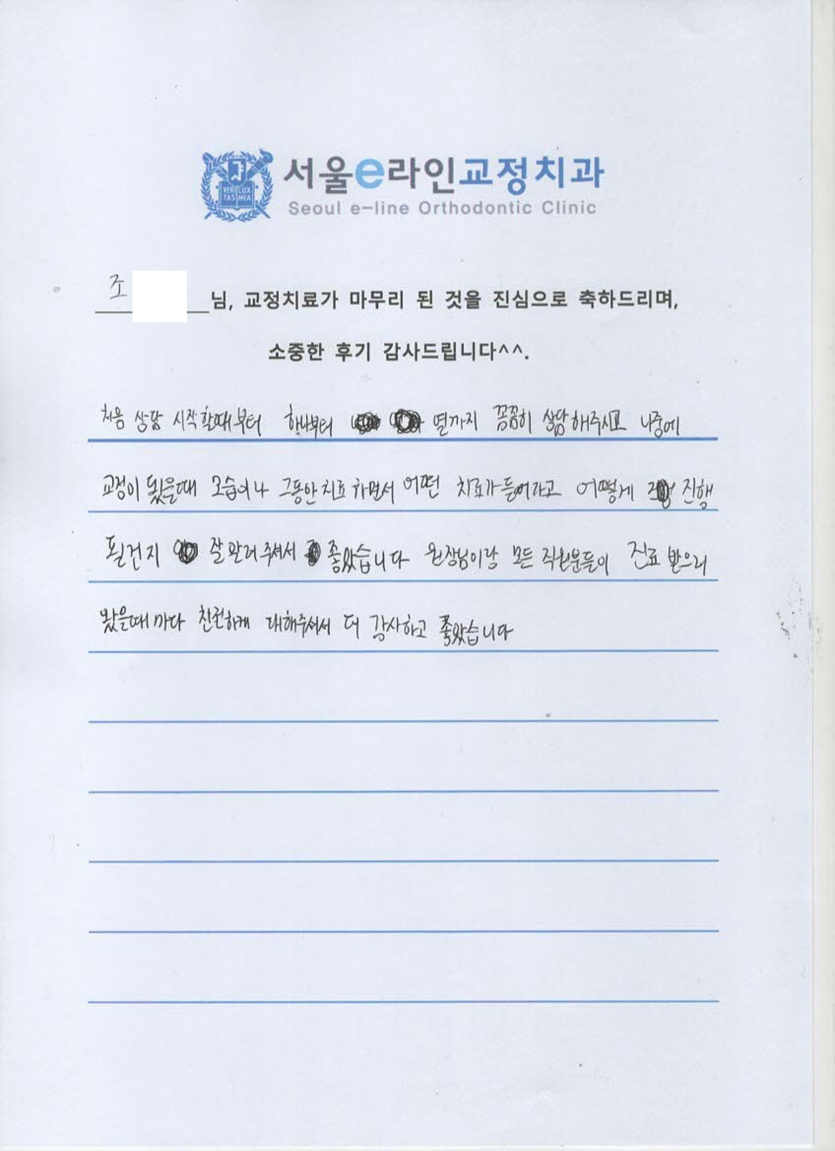 서울e라인교정치과
Seoul e-line Orthodontic Clinic
VERI LUX
TAS MEA
조 님, 교정치료가 마무리 된 것을 진심으로 축하드리며,
소중한 후기 감사드립니다^^.
처음 상담 시작할때부터 하나부터 열까지 꼼꼼히 상담해주시고 나중에
교정이 됬을때 모습이나 그동안 치료하면서 어떤 치료가 들어라고 어떻게 진행
될건지 잘 알려주셔서 좋았습니다 원장님이랑 모든 직원분들이 진료 받으러
왔을때마다 친절하게 대해주셔서 더 감사하고 좋았습니다